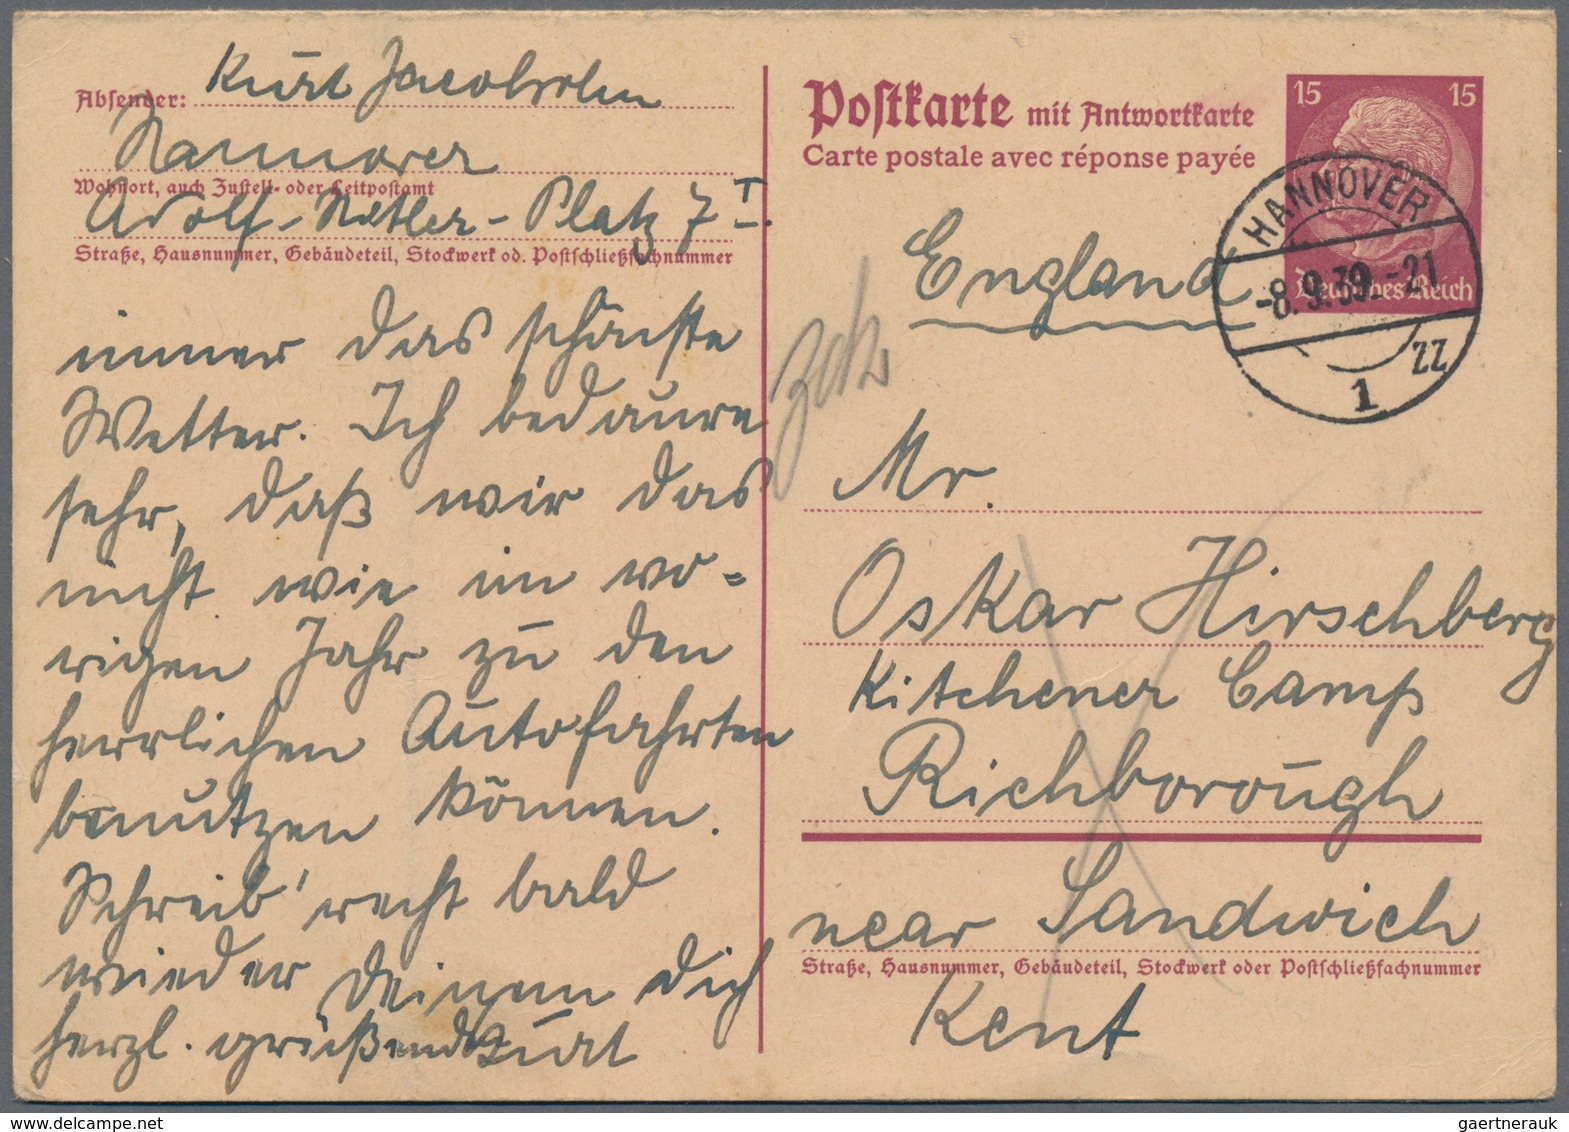 Absender: Kurt Jacobsohn
Hannover
Wohnort, auch Zustell- oder Leitpostamt
Adolf-Hitler-Platz 7 I.
Straße, Hausnummer, Gebäudeteil, Stockwerk od. Postschließfachnummer
immer das schönste
Wetter. Ich bedaure
sehr, daß wir das
nicht wie im vo=
rigen Jahr zu den
herrlichen Autofahrten
benutzen können.
Schreib' recht bald
wieder Deinem Dich
herzl. grüßenden Kurt
Postkarte mit Antwortkarte
Carte postale avec réponse payée
15 15
Deutsches Reich
HANNOVER
-8.9.39.-21
1 ZZ
England
Mr.
Oskar Hirschberg
Kitchener Camp
Richborough
near Sandwich
Straße, Hausnummer, Gebäudeteil, Stockwerk oder Postschließfachnummer
Kent
gaertnerauk@delcampe.net